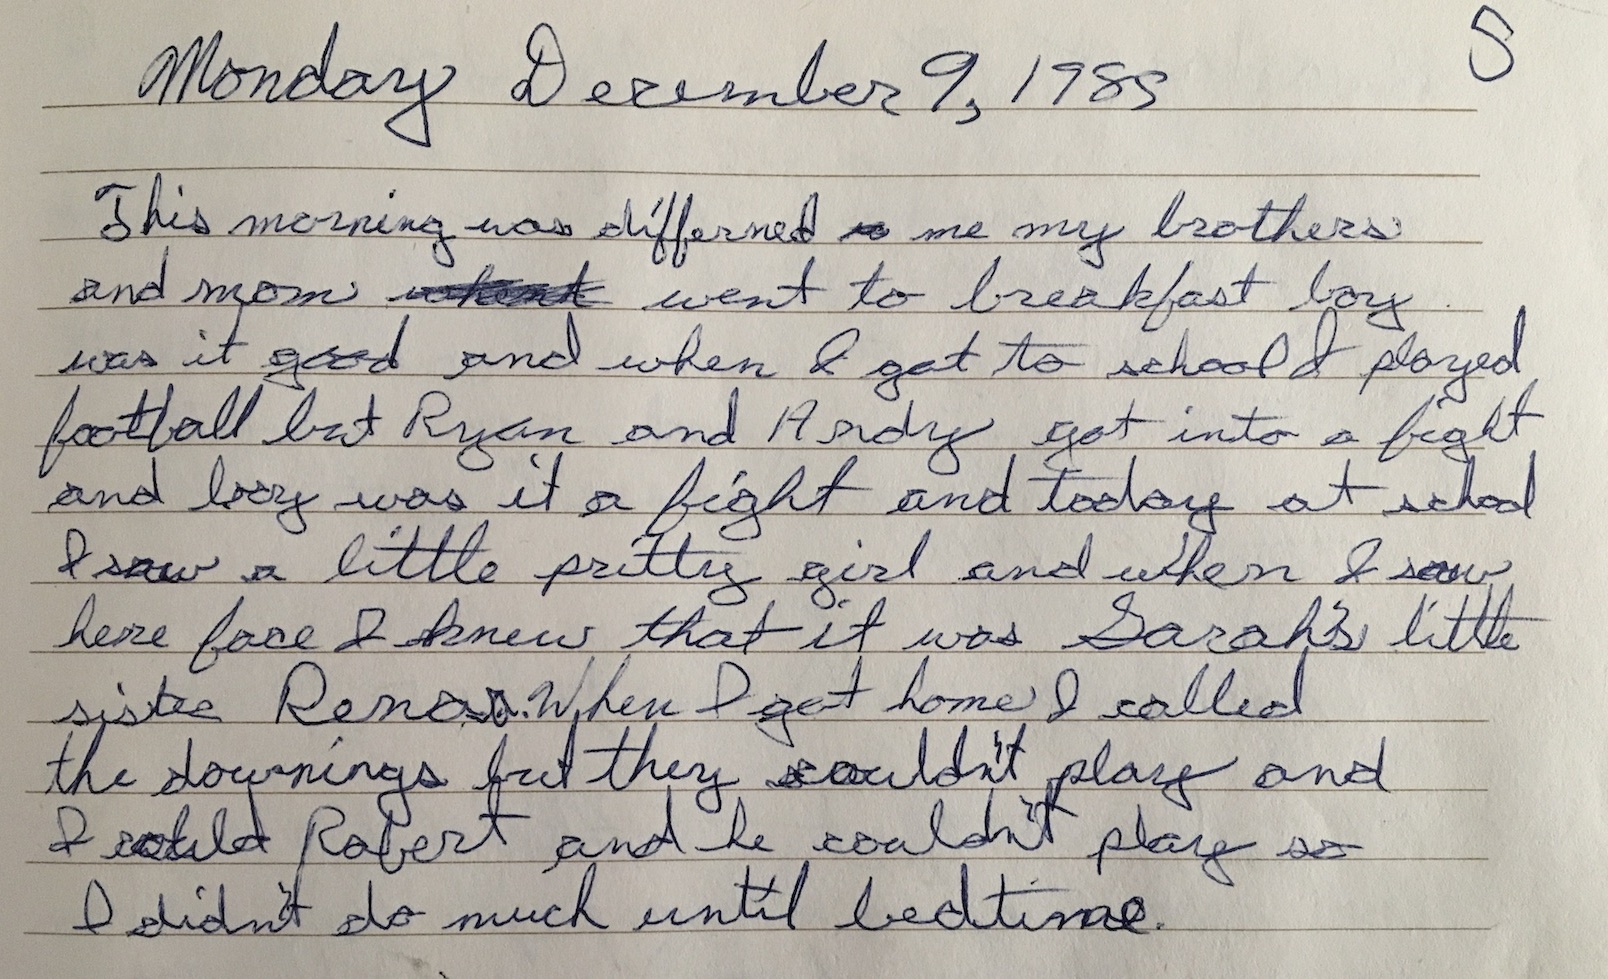 S
Monday December 9, 1985
This morning was differned me my brothers
and mom went to breakfast boy
was it good and when I got to school I played
football but Ryan and Andy got into a fight
and boy was it a fight and today at school
I saw a little pritty girl and when I saw
here face I knew that it was Sarah's little
siste When I got home I called
the downings but they couldn't play and
I Robert and he couldn't play so
I didn't do much until bedtime.